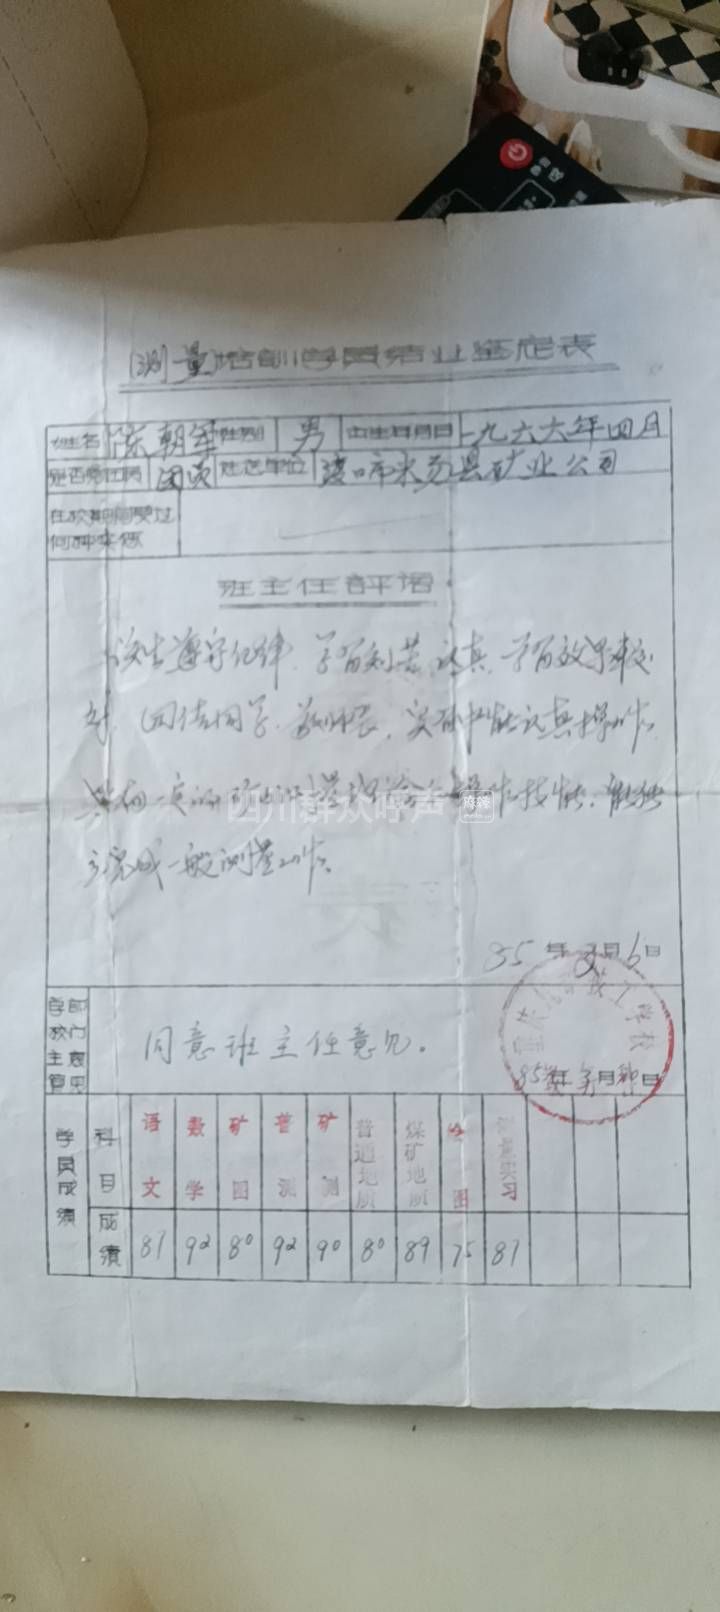 (测量)培训学员结业鉴定表
姓名 陈朝军 性别 男 出生年月日 一九六六年四月
是否党团员 团员 选送单位 渡口市米易县矿业公司
在校期间受过
何种奖惩
班主任評语
该生遵守纪律,学习刻苦、认真,学习效果较
好,团结同学,尊敬师长,实习中能认真操作。
具有一定的矿山测量理论和操作技能,能独
立完成一般测量工作。
四川群众呼声 麻辣
85年 月6日
同意班主任意见。
学校
85年 月 日
学员成绩
科目 语文 数学 矿图 普测 矿测 普通地质 煤矿地质 绘图 测量实习
成绩 87 92 80 92 90 80 89 75 87